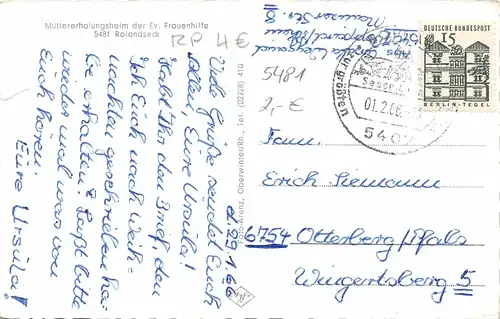 Müttererholungsheim der Ev. Frauenhilfe
5481 Rolandseck
RP 4 €
5481
2,- €
d. 29.1.66
Viele Grüße sendet Euch
allen, Eure Ursula!
Habt Ihr den Brief den
ich Euch nach Weih-
nachten geschrieben ha-
be erhalten? Laßt bitte
wieder mal was von
Euch hören.
Eure Ursula!
Arenz, Oberwinter/Rh., Tel. (02228) 410
Abs.
Ursula
Boppard/Rhein
DEUTSCHE BUNDESPOST
15
BERLIN-TEGEL
01.2.66
540
Fam.
Erich Siemann
6754 Otterberg/Pfalz
Wingertsberg 5